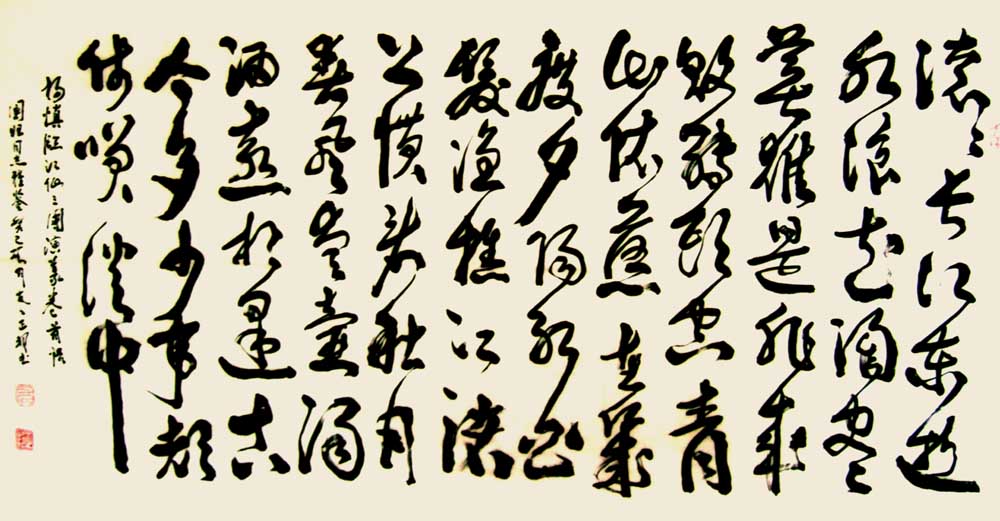 滚々长江东逝
水浪花淘尽
英雄是非成
敗轉头空青
山依舊在几
度夕阳红白
髮渔樵江渚
上惯看秋月
春風壹壶濁
酒喜相逢古
今多少事都
付笑谈中
杨慎临江仙三国演义卷首语